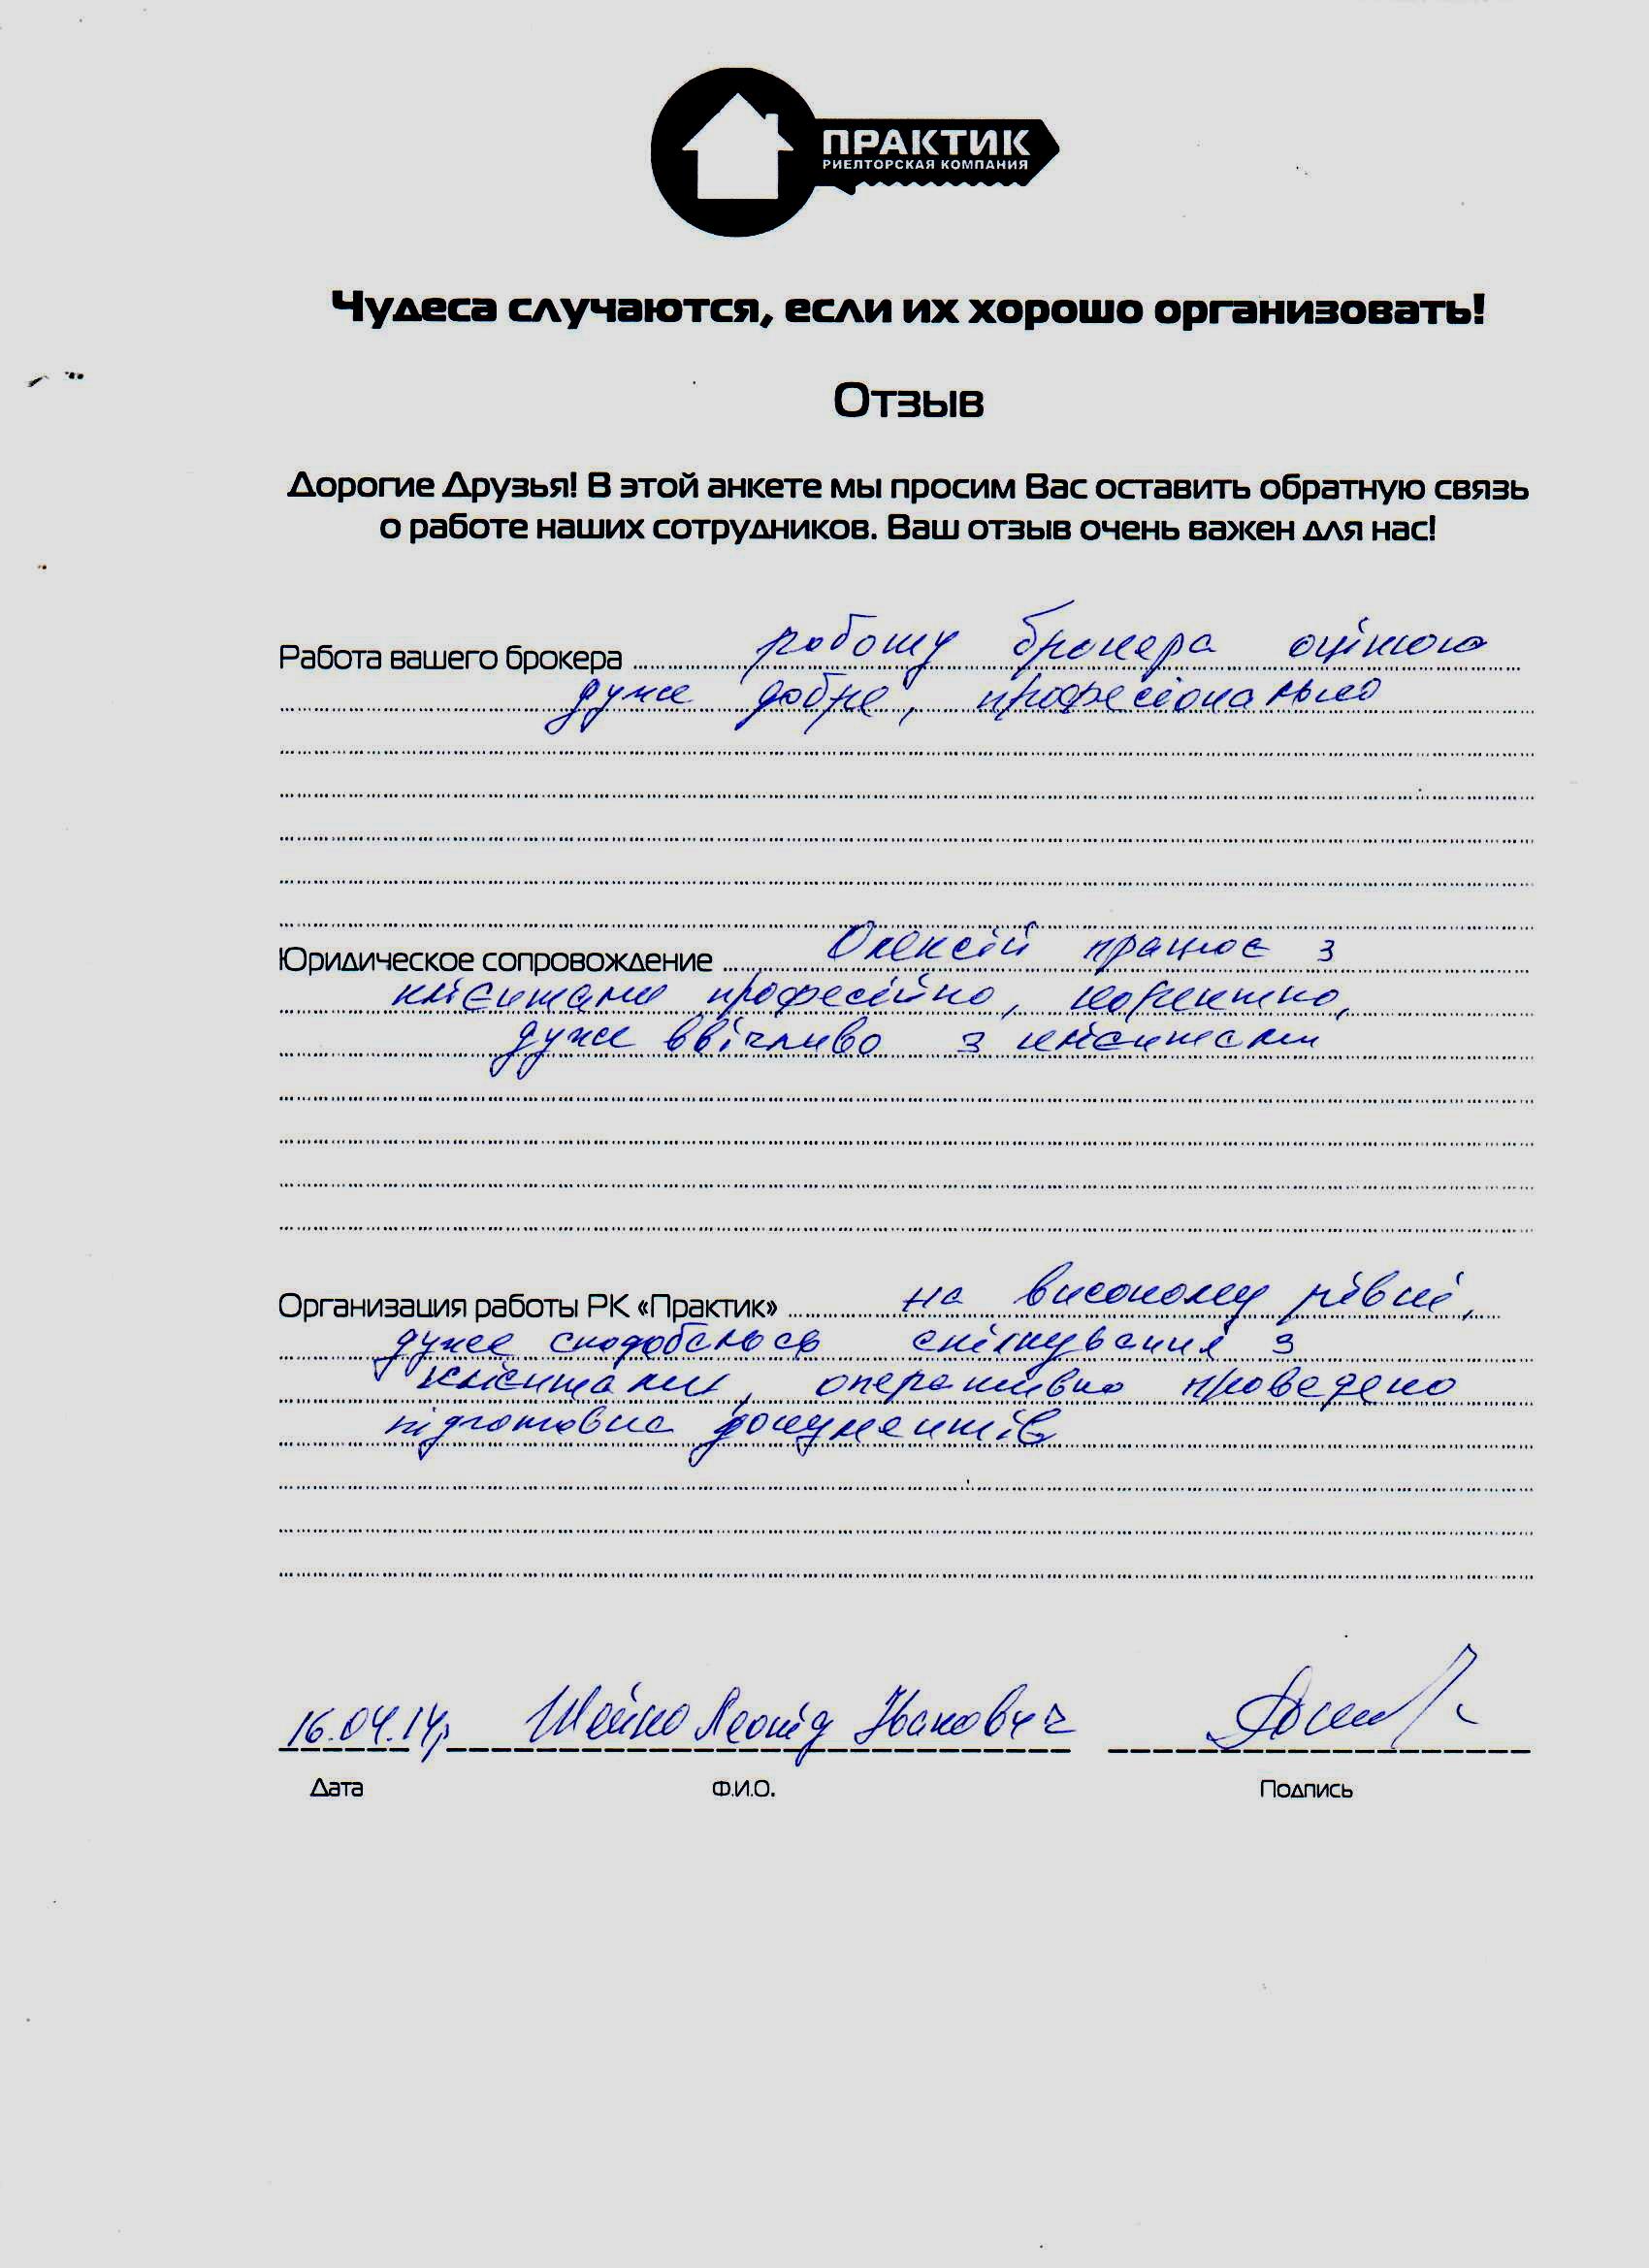 ПРАКТИК
РИЕЛТОРСКАЯ КОМПАНИЯ
Чудеса случаются, если их хорошо организовать!
Отзыв
Дорогие Друзья! В этой анкете мы просим Вас оставить обратную связь
о работе наших сотрудников. Ваш отзыв очень важен для нас!
Работа вашего брокера роботу брокера оцінюю
дуже добре, професіонально
Юридическое сопровождение Олексій працює з
клієнтами професійно, коректно,
дуже ввічливо з клієнтами
Организация работы РК «Практик» на високому рівні,
дуже сподобалось спілкування з
клієнтами, оперативно проведено
підготовка документів
16.04.14р Шейко Леонід Іванович
Дата Ф.И.О. Подпись